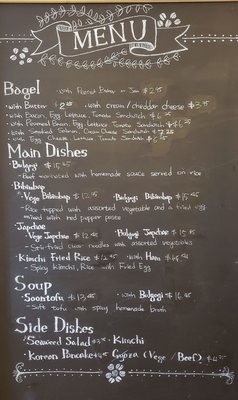 MENU
Bagel
-with Peanut Butter or Jam $2.95
-with Butter $2.
-with cream/cheddar cheese $3.95
-with Bacon, Egg, Lettuce, Tomato Sandwich $
-with Bacon, Egg, Lettuce, Tomato Sandwich $
-with Smoked Salmon, Cream Cheese Sandwich $7.25
-with Egg, Cheese, Lettuce, Tomato Sandwich $
Main Dishes
-Bulgogi $15.45
-Beef marinated with homemade sauce served on rice
-Bibimbap
-Vege Bibimbap $12.95 -Bulgogi Bibimbap $15.45
-Rice topped with assorted vegetable and a fried egg
mixed with red pepper paste
-Japchae
-Vege Japchae $12.45 -Bulgogi Japchae $15.45
-Stir-fried clear noodles with assorted vegetables
-Kimchi Fried Rice $12.45 -with Ham $14.
-Spicy Kimchi, Rice with Fried Egg
Soup
-Soontofu $13.45 -with Bulgogi $16.45
-Soft tofu with spicy homemade broth
Side Dishes
-Seaweed Salad -Kimchi
-Korean Pancake Gyoza (Vege / Beef) $